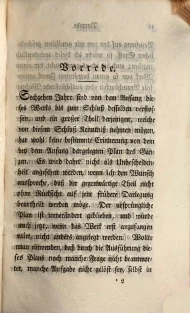 Vorrede.
Sechzehen Jahre sind von dem Anfang die-
ses Werks bis zum Schluß desselben verflos-
sen, und ein großer Theil derjenigen, welche
von diesem Schluß Kenntniß nehmen mögen,
hat wohl keine bestimmte Erinnerung von dem
bey dem Anfang dargelegten Plan des Gan-
zen. Es wird daher nicht als Unbescheiden-
heit angesehen werden, wenn ich den Wunsch
ausspreche, daß der gegenwärtige Theil nicht
ohne Rücksicht auf jene frühere Darlegung
beurtheilt werden möge. Der ursprüngliche
Plan ist unverändert geblieben, und würde
auch jetzt, wenn das Werk erst anzufangen
wäre, nicht anders angelegt werden. Wollte
man einwenden, daß durch die Ausführung die-
ses Plans noch manche Frage nicht beantwor-
tet, manche Aufgabe nicht gelöst sey, selbst in
* 2